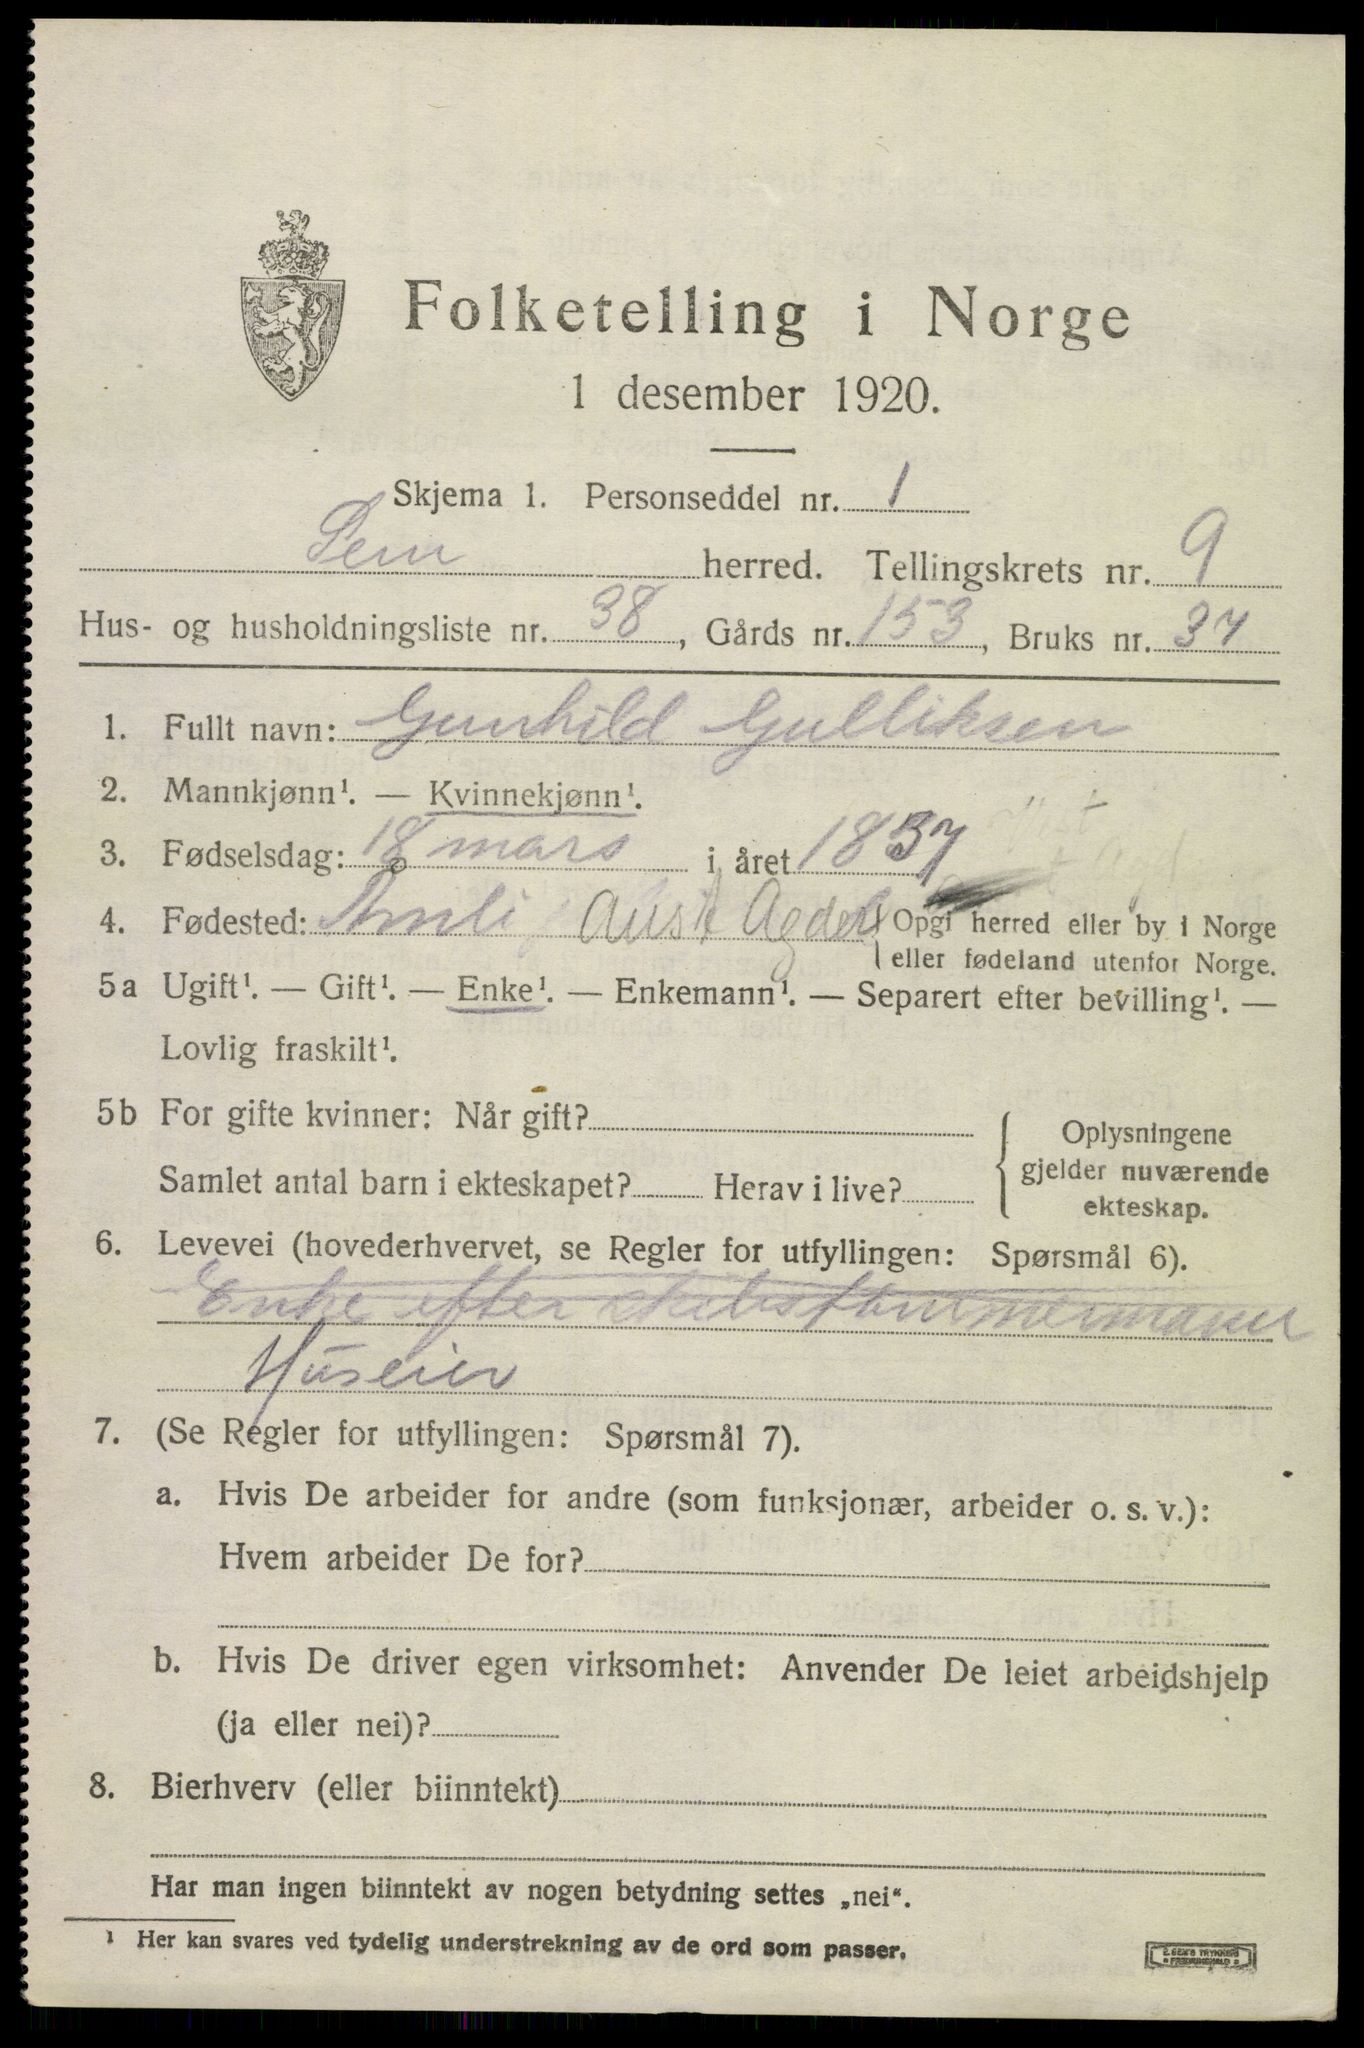 Folketelling i Norge
1 desember 1920.
Skjema 1. Personseddel nr. 1
Sem herred. Tellingskrets nr. 9
Hus- og husholdningsliste nr. 38, Gårds nr. 153, Bruks nr. 37
1. Fullt navn: Gunhild Gulliksen
2. Mannkjønn¹. — Kvinnekjønn¹.
3. Fødselsdag: 18 mars i året 1837
4. Fødested: Åmli Aust Agder { Opgi herred eller by i Norge
eller fødeland utenfor Norge.
5a Ugift¹. — Gift¹. — Enke¹. — Enkemann¹. — Separert efter bevilling¹. —
Lovlig fraskilt¹.
5b For gifte kvinner: Når gift?
Samlet antal barn i ekteskapet? Herav i live?
Oplysningene
gjelder nuværende
ekteskap.
6. Levevei (hovederhvervet, se Regler for utfyllingen: Spørsmål 6).
Enke efter skibstømmermann
Huseier
7. (Se Regler for utfyllingen: Spørsmål 7).
a. Hvis De arbeider for andre (som funksjonær, arbeider o. s. v.):
Hvem arbeider De for?
b. Hvis De driver egen virksomhet: Anvender De leiet arbeidshjelp
(ja eller nei)?
8. Bierhverv (eller biinntekt)
Har man ingen biinntekt av nogen betydning settes „nei“.
¹ Her kan svares ved tydelig understrekning av de ord som passer.